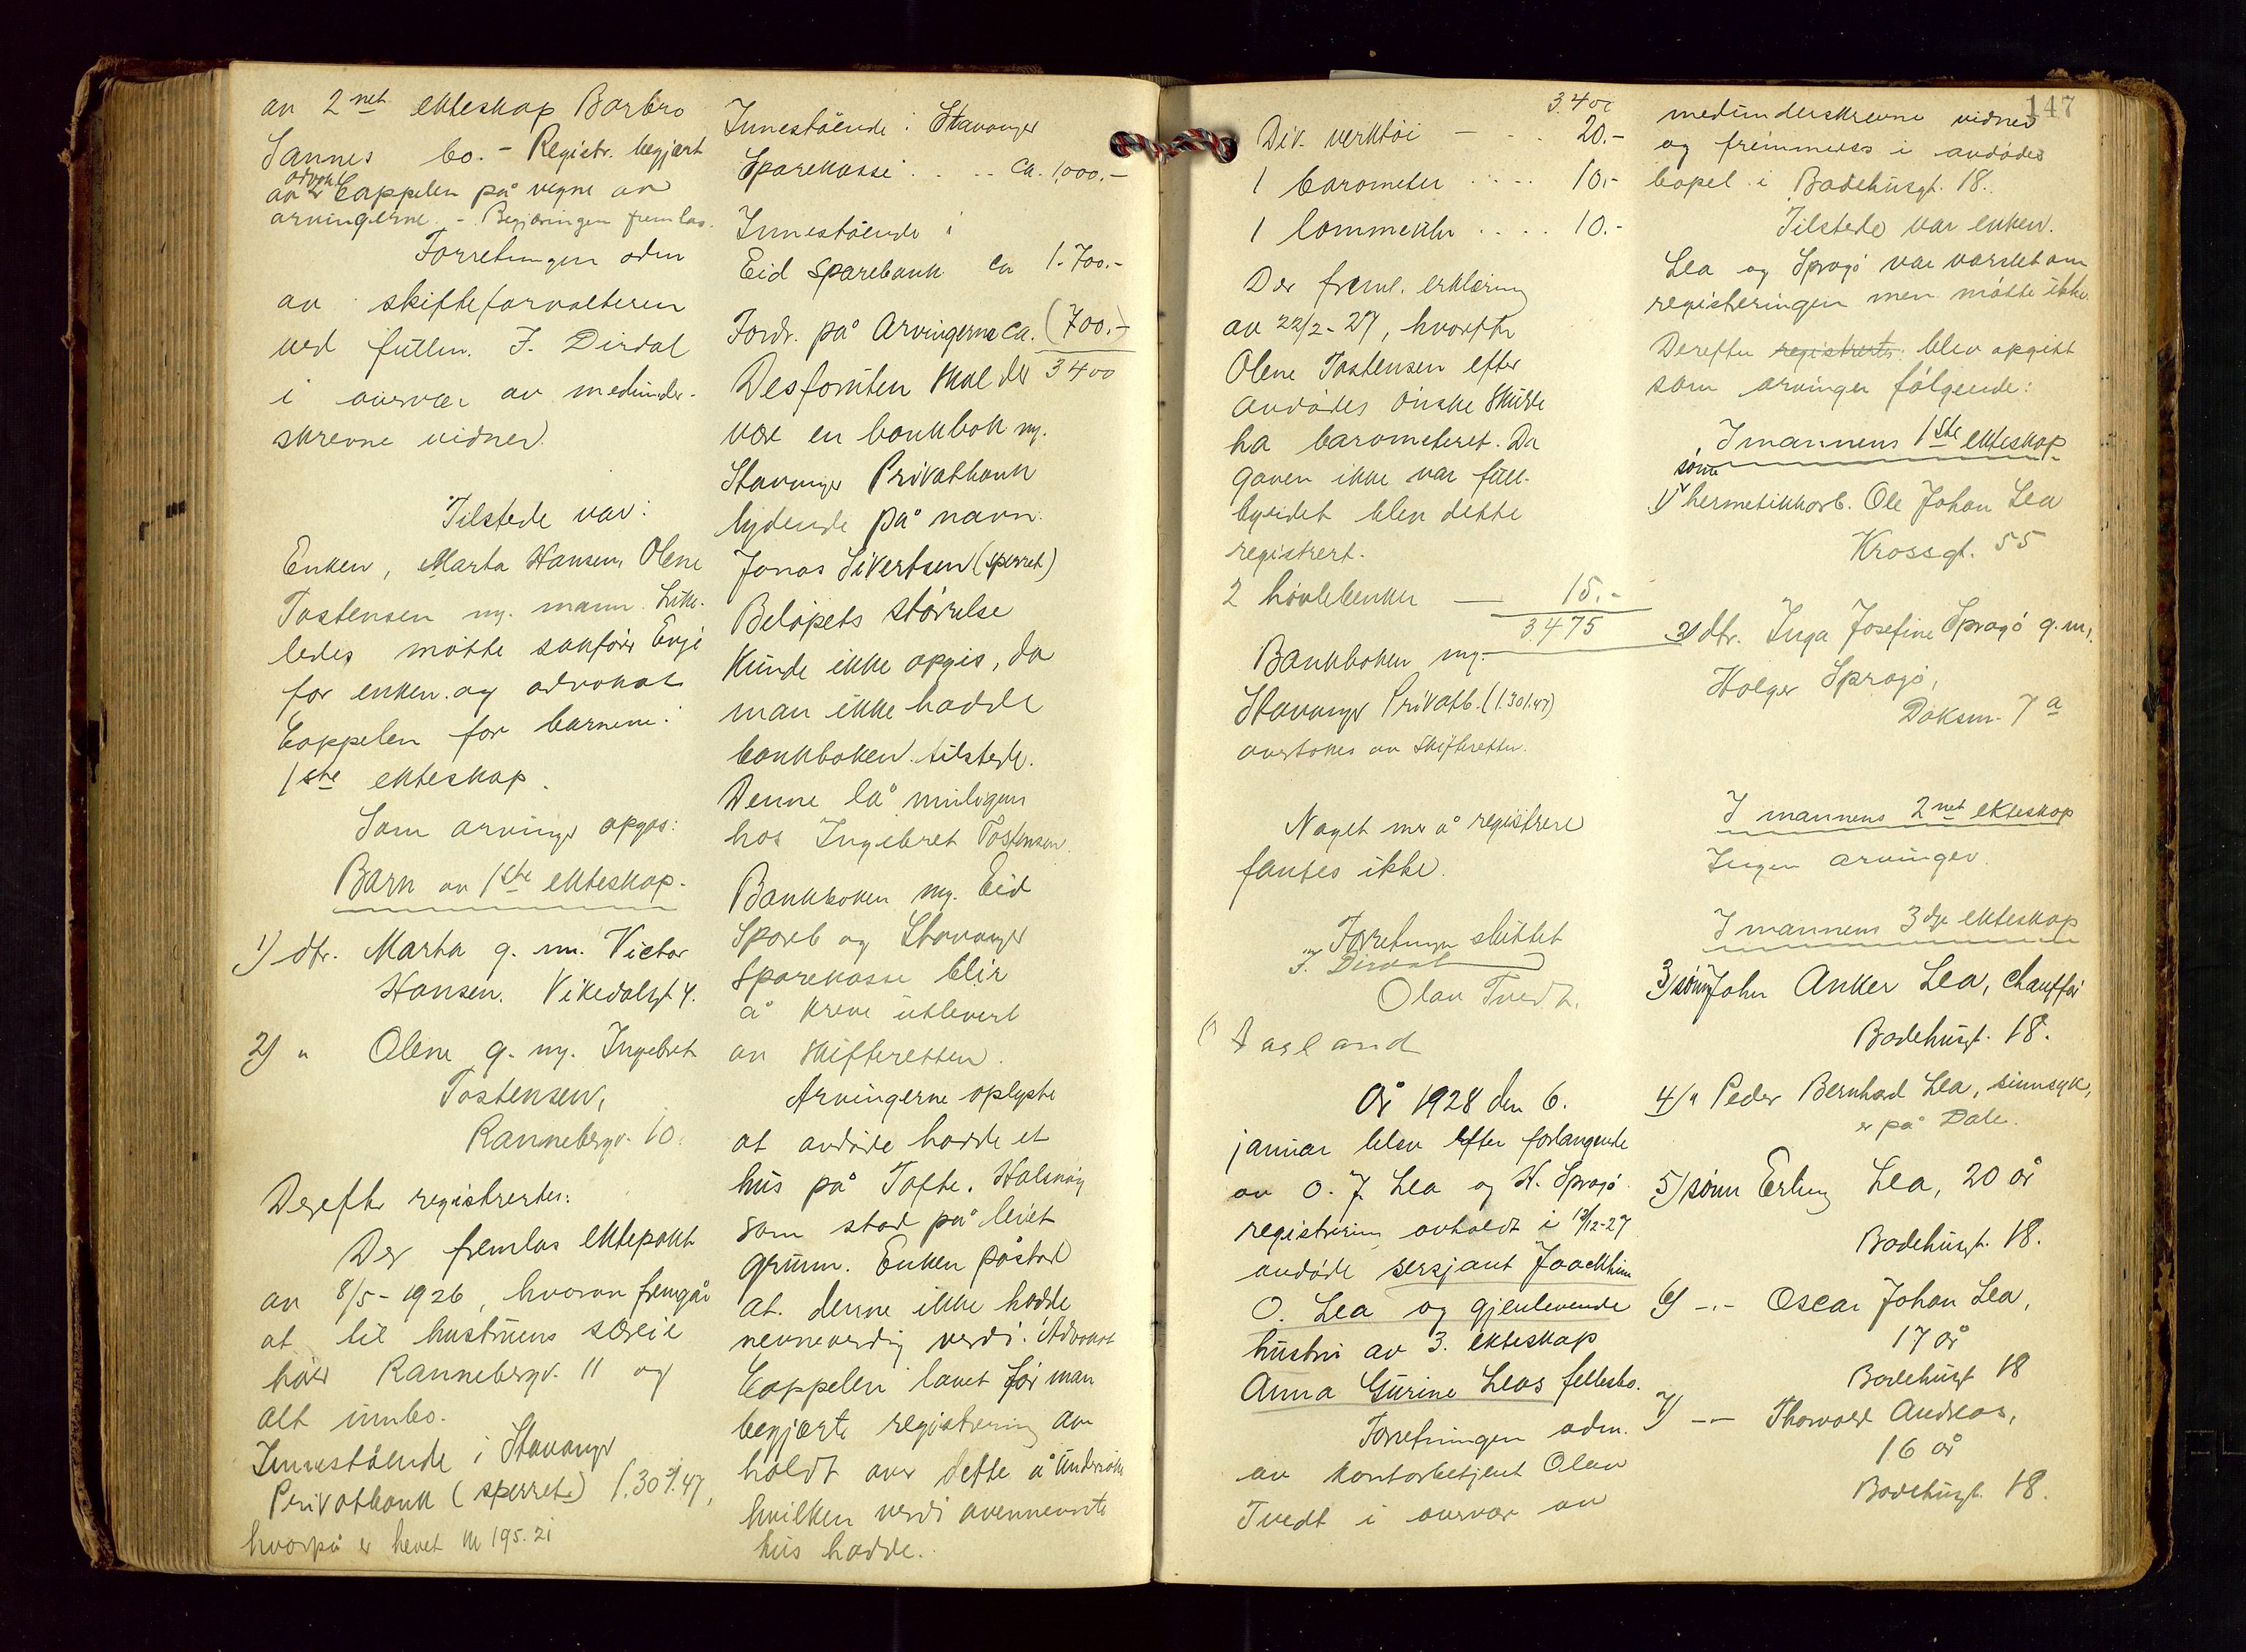 av 2net ekteskap Barbro
Sannes bo. - Registr. begjært
advokt
av Cappelen på vegne av
arvingerne. - Begjæringen fremlas.
Forretningen adm
av skifteforvalteren
ved fullm. F. Dirdal
i overvær av medunder-
skrevne vidner.
Tilstede var:
Enken, Marta Hansen, Olene
Tostensen m. mann. Like-
ledes møtte sakfører Evje
for enken og advokat
Cappelen for barnene i
1ste ekteskap.
Som arvinger opgas:
Barn av 1ste ekteskap.
1) dtr. Marta g. m. Victor
Hansen. Vikedalsgt 4.
2) " Olene g. m. Ingebret
Tostensen,
Rannebergv. 10.
Derefter registrertes:
Der fremlas ektepakt
av 8/5-1926, hvorav fremgår
at til hustruens særeie
hører Rannebergv. 11 og
alt innbo.
Innestående i Stavanger
Privatbank (sperret)
hvorpå er hevet kr 195.21
Innestående i Stavanger
Sparekasse . . . . ca. 1,000.-
Innestående i
Eid Sparebank ca 1.700.-
Fordr. på Arvingerne ca. (700.-)
3400
Desforuten skal der
være en bankbok m.
Stavanger Privatbank
lydende på navn
Jonas Sivertsen (sperret)
Beløpets størrelse
kunde ikke opgis, da
man ikke hadde
bankboken tilstede.
Denne lå muligens
hos Ingebret Tostensen.
Bankboken m. Eid
Spareb og Stavanger
Sparekasse blir
å kreve utlevert
av skifteretten.
Arvingerne oplyste
at avdøde hadde et
hus på Tofte, Halsnøy
som stod på leiet
grunn. Enken påstod
at denne ikke hadde
nevneverdig verdi. Advokat
Cappelen lovet før man
begjærte registrering av
holdt over dette å undersøke
hvilken verdi ovennevnte
hus hadde.
3400
Div. verktøi - . . 20.-
1 barometer . . . . 10.-
1 lommeuhr . . . . 10.-
Der freml. erklæring
av 22/2-27, hvorefter
Olene Tostensen efter
avdødes ønske skulde
ha barometeret. Da
gaven ikke var full-
byrdet blev dette
registrert.
2 høvlebenker — 15.-
3475
Bankboken m.
Stavanger Privatb.
overtokes av skifteretten.
Noget mer å registrere
fantes ikke.
Forretningen sluttet
F. Dirdal
Olav Tvedt.
År 1928 den 6.
januar blev efter forlangende
av O. J. Lea og H. Sprogø
registrering avholdt i 13/12-27
avdøde sersjant Joackhim
O. Lea og gjenlevende
hustru av 3. ekteskap
Anna Gurine Leas fellesbo.
Forretningen adm.
av kontorbetjent Olav
Tvedt i overvær av
147
medunderskrevne vidner
og fremmedes i avdødes
bopel i Badehusgt. 18.
Tilstede var enken.
Lea og Sprogø var varslet om
registreringen men møtte ikke.
Derefter registrertes: blev opgitt
som arvinger følgende:
I mannens 1ste ekteskap
sønn
1) hermetikkarb. Ole Johan Lea
Krossgt. 55
2) dtr. Inga Josefine Sprogø g. m.
Holger Sprogø,
Doksm. 7a
I mannens 2net ekteskap
Ingen arvinger.
I mannens 3dje ekteskap
3) sønn John Anker Lea, chauffør
Badehusgt. 18.
4) " Peder Bernhard Lea, sinnsyk,
er på Dale.
5) sønn Erling Lea, 20 år
Badehusgt. 18.
6) -"- Oscar Johan Lea,
17 år
Badehusgt 18
7) -"- Thorvald Andreas,
16 år
Badehusgt. 18.